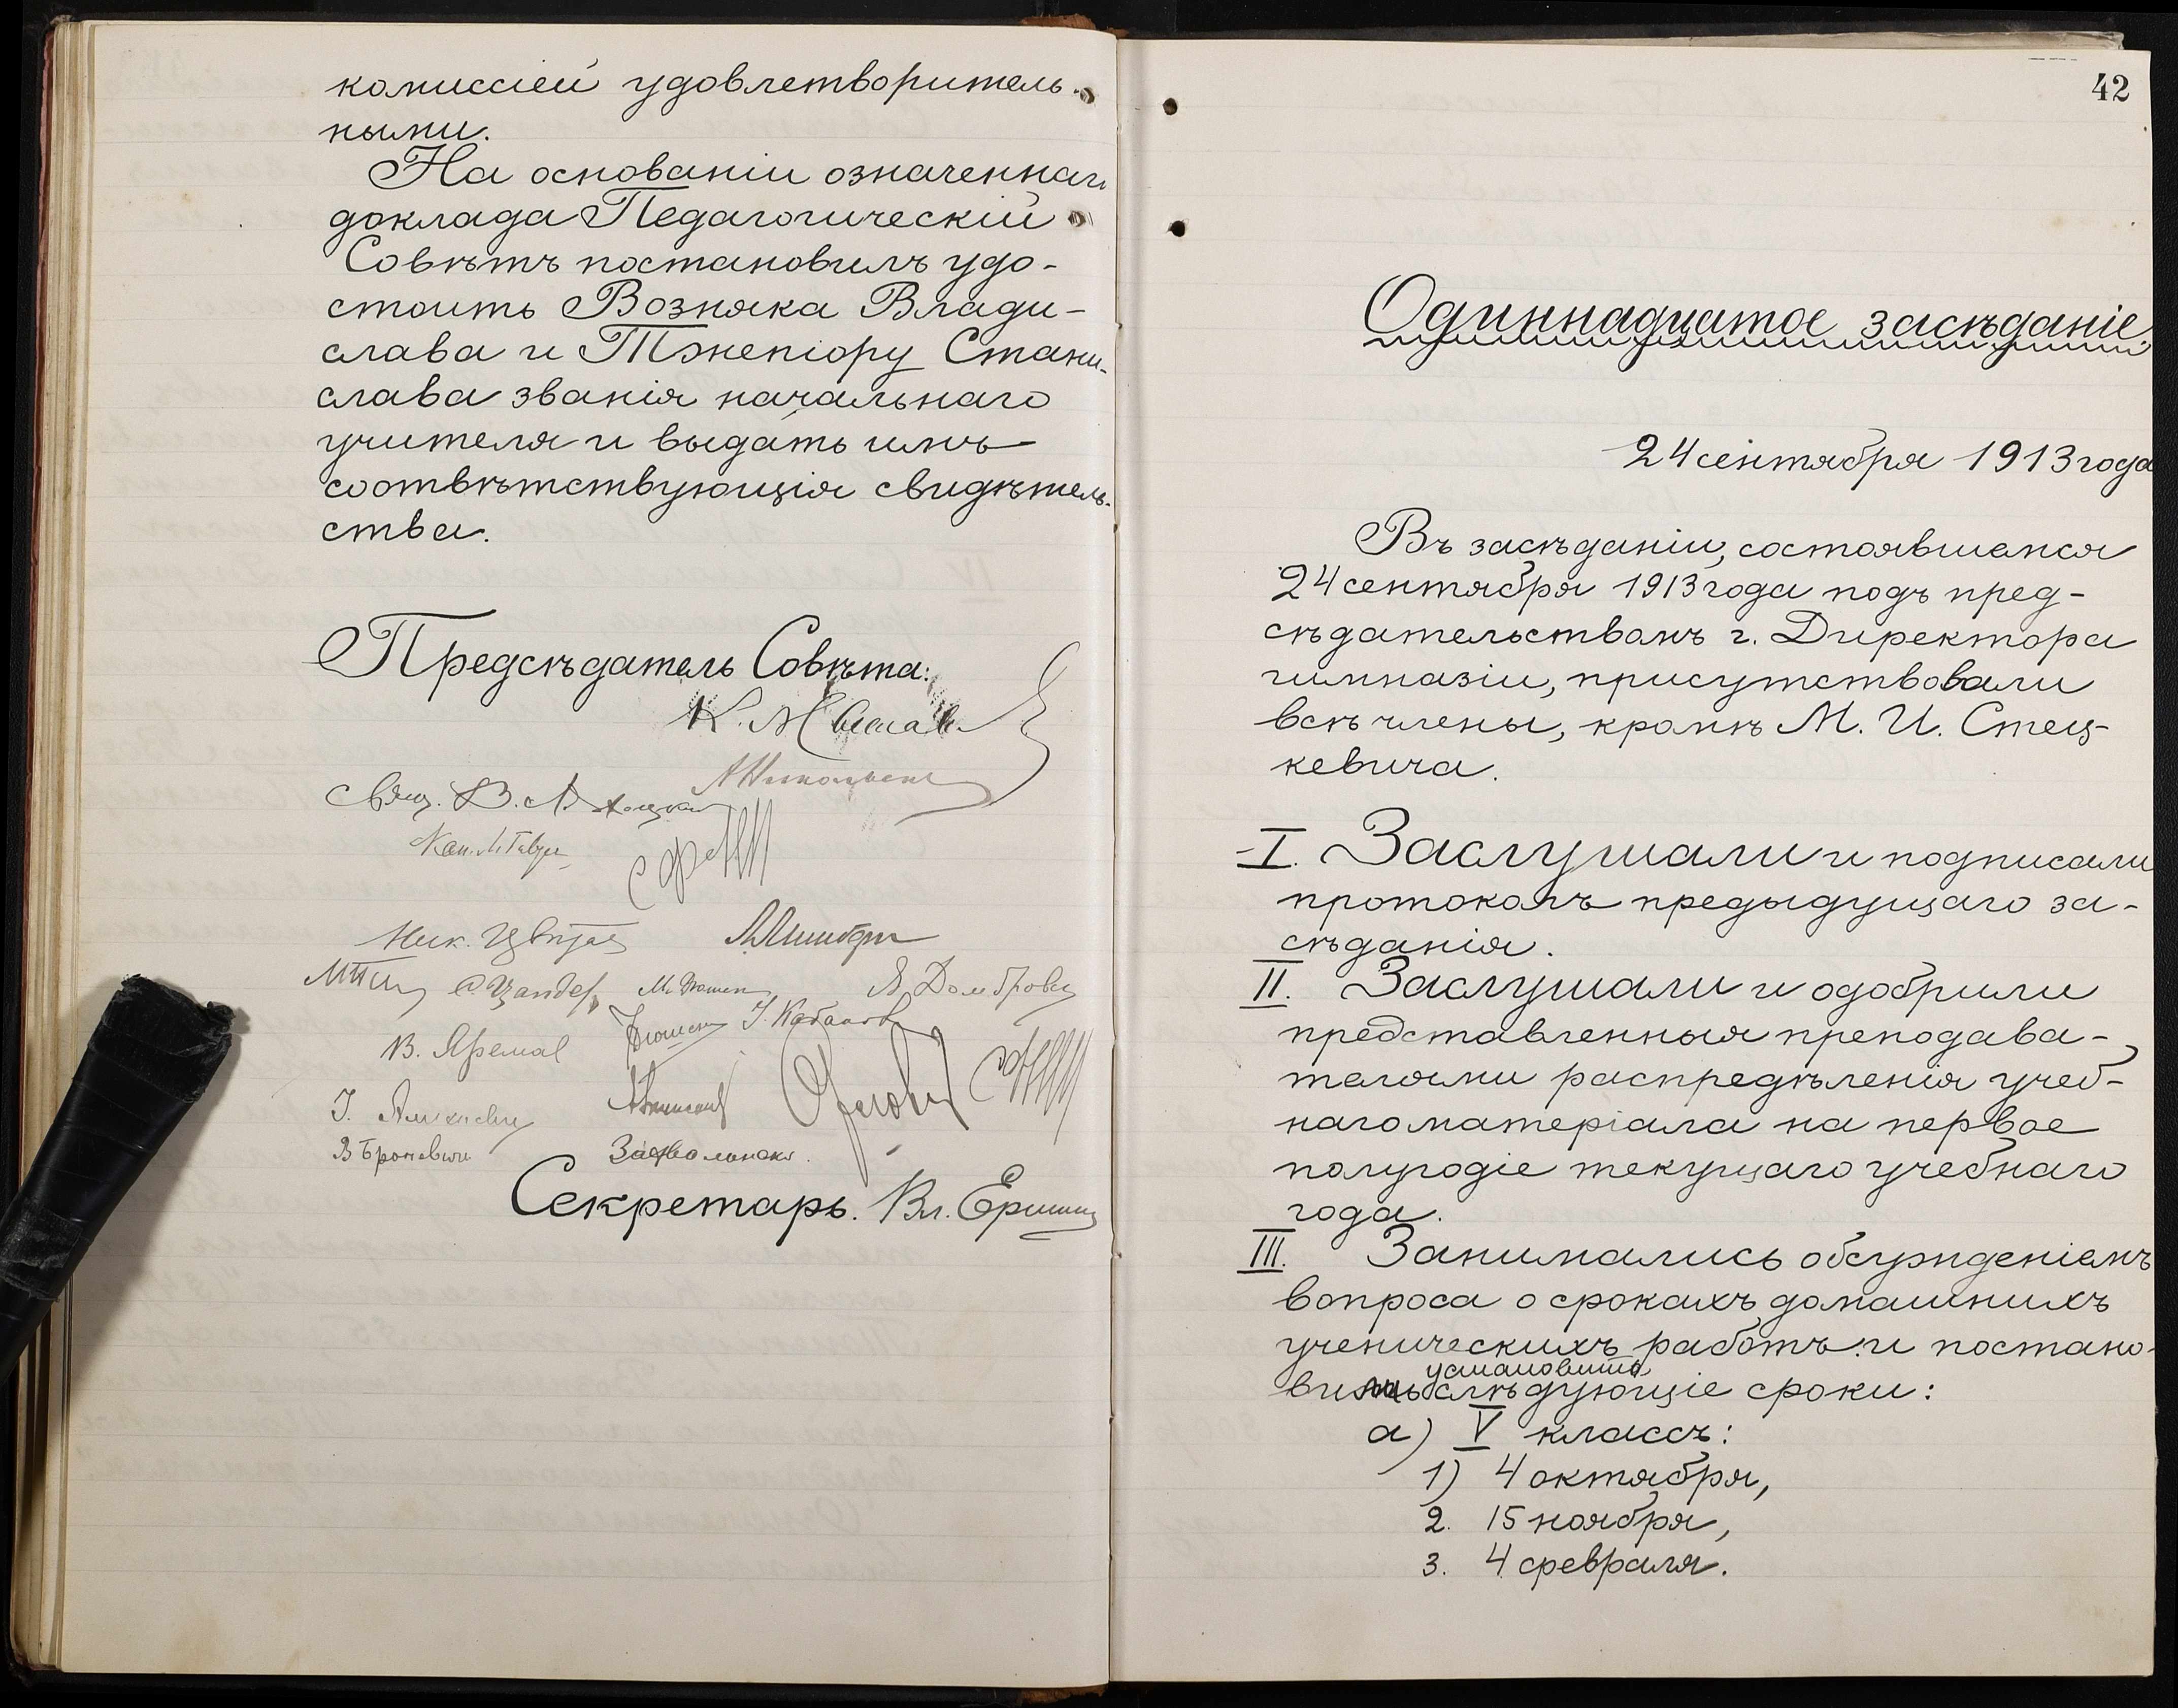 комиссіей удовлетворитель-
ными.
На основаніи означеннаго
доклада Педагогическій
Совѣтъ постановилъ удо-
стоить Возняка Влади-
слава и Тженіору Стани-
слава званія начальнаго
учителя и выдать имъ
соотвѣтствующія свидѣтель-
ства.
Предсѣдатель Совѣта:
Свящ. В.
Ник.
М. В. Домбровск
В. І. Кабанов
І.
В Броневичъ
Секретарь. Вл.
42
Одиннадцатое засѣданіе.
24 сентября 1913 года
Въ засѣданіи, состоявшемся
24 сентября 1913 года подъ пред-
сѣдательствомъ г. Директора
гимназіи, присутствовали
всѣ члены, кромѣ М. И. Стец-
кевича.
I. Заслушали и подписали
протоколъ предыдущаго за-
сѣданія.
II. Заслушали и одобрили
представленныя преподава-
телями распредѣленія учеб-
наго матеріала на первое
полугодіе текущаго учебнаго
года.
III. Занимались обсужденіемъ
вопроса о срокахъ домашнихъ
ученическихъ работъ и постано-
установить
вилъ слѣдующіе сроки:
а) V классъ:
1) 4 октября,
2. 15 ноября,
3. 4 февраля.